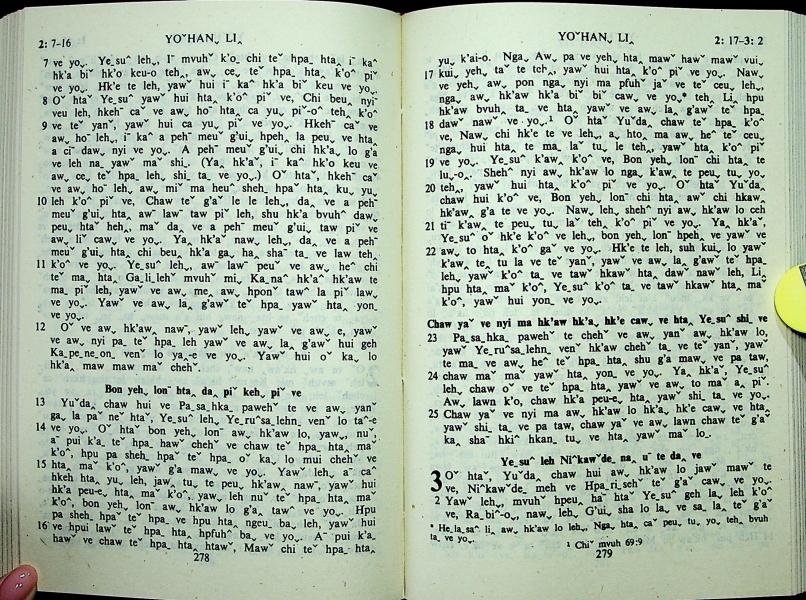 2: 7-16 YOˇHAN˯ LI˰
7 ve yoˬ. Ye˗suˆ leh˯, Iˇ mvuhˇ k'o˰ chi teˇ hpa˗ hta˰ iˇ kaˆ
hk'a biˇ hk'o keu-o teh˰, aw ce˰ teˇ hpa˗ hta˰ k'oˆ piˇ
ve yo˯. Hk'e te leh, yawˇ hui iˇ kaˆ hk'a biˇ keu ve yo˯.
8 Oˇ htaˇ Ye˗suˆ yawˇ hui hta˰ k'oˆ piˇ ve, Chi beu˰ nyiˇ
veu leh, hkehˇ caˇ ve aw˯ hoˇ hta˰ ca yu˰ piˇ-oˇ teh˰ k'oˆ
9 ve teˇ yanˇ, yawˇ hui ca yu˰ piˇ ve yo˯. Hkehˇ caˇ ve
aw˯ hoˇ leh˯, iˇ kaˆ a pehˇ meuˇ g'ui˰ hpeh˰ la peu˰ ve hta˰
a ciˇ daw˯ nyi ve yo˯. A pehˇ meuˇ g'ui˰ chi hk'a˰ lo g'a
ve leh na˯ yawˇ ma˯ shi˰. (Ya˯ hk'aˇ, iˇ kaˆ hk'o keu ve
aw˯ ce˰ teˇ hpa˯ leh˯ shi˗ ta˰ ve yo˯.) Oˇ htaˇ, hkehˇ caˇ
ve aw˯ hoˇ leh˯ aw˯ miˇ ma heuˆ sheh˗ hpaˇ hta˰ ku˰ yu˰
10 leh k'oˆ piˇ ve, Chaw teˇ g'aˇ le le leh˯, da˰ ve a peh⁻
meuˇ g'ui˰ hta˰ awˇ lawˇ taw piˇ leh, shu hk'a bvuhˇ daw˯
peu˰ htaˇ heh˰, maˇ da˰ ve a pehˇ meuˇ g'ui˰ taw piˇ ve
aw˯ liˇ caw˯ ve yo˯. Ya˯ hk'aˇ naw˯ leh˯, da˰ ve a peh⁻
meuˇ g'ui˰ hta˰ chi beu˰ hk'a ga˰ ha˰ shaˇ ta˰ ve law teh˰
11 k'oˆ ve yo˯. Ye˗suˆ leh˯, awˇ lawˇ peuˇ ve aw˯ heˆ chi
teˇ ma˰ hta˰ Ga˗li˗lehˇ mvuhˇ mi˰ Ka˗naˇ hk'aˇ hk'aw te
ma˗ piˇ leh, yaw ve aw˯ me˰ aw˯ hponˇ tawˆ la piˇ law˯
ve yo˯. Yawˇ ve aw˯ la˰ g'awˇ teˇ hpa˯ yawˇ hta˰ yon˗
ve yo˯.
12 Oˇ ve aw˯ hk'aw˰ nawˇ, yawˇ leh˯ yawˇ ve aw˯ e, yawˇ
ve aw˯ nyi pa˯ teˇ hpa˯ leh yawˇ ve aw˯ la˰ g'awˇ hui geh
Ka˗pe˗ne˗on˯ venˇ lo ya˰-e ve yo˯. Yawˇ hui oˇ ka˰ lo
hk'a˰ maw maw maˇ chehˇ.
Bon yeh˯ lonˇ hta˰ da˰ piˇ keh˯ piˇ ve
13 Yuˇda˰ chaw hui ve Pa˗sa˗hka˯ pawehˇ te ve aw˯ yanˇ
ga˰ la paˇ neˇ htaˇ, Ye˗suˆ leh˯ Ye˗ruˇsa˗lehn˯ venˇ lo taˆ-e
14 ve yo˯. Oˇ htaˇ bon yeh˯ lonˇ aw˯ hk'aw lo, yaw˯, nuˇ,
aˇ pui k'a˯ teˇ hpa haw˯ chehˇ ve chaw teˇ hpa˯ hta˰ maˇ
k'oˆ, hpu pa sheh˯ hpaˇ teˇ hpa˯ oˇ ka˰ lo mui chehˇ ve
15 hta˰ maˇ k'oˆ, yawˇ g'a maw˰ ve yo˯. Yawˇ leh˯ aˇ caˆ
hkeh hta˰ yu leh, jaw˰ tu˰ te peu˰ hk'aw˰ nawˇ, yawˇ hui
hk'a peu-e˰ hta˰ maˇ k'oˆ, yawˇ leh nuˇ teˇ hpa˯ hta˰ maˇ
k'oˆ, bon yeh˯ lonˇ aw˯ hk'aw lo g'a˰ tawˆ ve yo˯. Hpu
pa sheh˯ hpaˇ teˇ hpa˯ ve hpu hta˰ ngeu˰ ba˰ leh, yawˇ hui
16 ve hpui lawˇ te˯ hpa hta˰ hpfuhˆ ba˰ ve yo˯. Aˇ pui k'a˯
hawˇ ve chaw teˇ hpa˗ hta˰ htaw˰, Maw˯ chi teˇ hpa˗ hta˰
278
YOˇHAN˯ LI˰ 2: 17–3: 2
yu˰ k'ai-o. Nga˯ Aw˯ pa ve yeh˯ hta˰ mawˇ hawˇ mawˇ vui˯
17 kui˰ yeh˯ taˇ te teh˰, yawˇ hui hta˰ k'oˆ piˇ ve yo˯. Naw˯
ve yeh˯ aw˯ pon nga˯ nyi ma pfuhˇ jaˇ ve teˇ ceu˰ leh˯,
nga˯ aw˯ hk'aw hk'a biˇ biˇ cawˇ ve yo˯* teh˰ Li˰ hpu
hk'aw bvuh˰ ta˰ ve hta˰ yawˇ ve aw˯ la˰ g'awˇ teˇ hpa˯
18 dawˇ naw˰ ve yo˯.¹ Oˇ htaˇ Yuˇda˰ chaw teˇ hpa˯ k'oˆ
ve, Naw˯ chi hk'e te ve leh˯, a˰ hto˰ ma aw˯ heˆ teˇ ceu˰
nga˯ hui hta˰ te ma˰ laˇ tu˰ le teh˰, yawˇ hta˰ k'oˆ piˇ
19 ve yo˯. Ye˗suˆ k'aw˰ k'oˆ ve, Bon yeh˯ lonˇ chi hta˰ te
lu˯-o˰. Shehˇ nyi aw˯ hk'aw lo nga˯ k'aw˰ te peu˰ tu˰ yo˯
20 teh˰, yawˇ hui hta˰ k'oˆ piˇ ve yo˯. Oˇ htaˇ Yuˇda˰
chaw hui k'oˆ ve, Bon yeh˯ lonˇ chi hta˰ awˇ chi hkaw˯
hk'aw˰ g'a te ve yo˯. Naw˯ leh˯ shehˇ nyi aw˯ hk'aw lo ceh
21 tiˇ k'aw˰ te peu˰ tu˰ laˇ teh˰ k'oˆ piˇ ve yo˯. Ya˯ hk'aˇ,
Ye˗suˆ oˇ hk'e k'oˆ ve leh˯, bon yeh˯ lonˇ hpeh˰ ve yawˇ ve
22 aw˯ to hta˰ k'oˆ gaˇ ve yo˯. Hk'e te leh, suh kui˰ lo yawˇ
k'aw˰ te˰ tu la ve teˇ yanˇ, yawˇ ve aw˯ la˰ g'awˇ teˇ hpa˯
leh˯ yawˇ k'oˆ ta˰ ve tawˇ hkawˇ hta˰ dawˇ nawˇ leh, Li˰
hpu hta˰ maˇ k'oˆ, Ye˗suˆ k'oˆ ta˰ ve tawˇ hkawˇ hta˰ maˇ
k'oˆ, yawˇ hui yon˗ ve yo˯.
Chaw yaˇ ve nyi ma hk'aw hk'a˰ hk'e caw˰ ve hta˰ Ye˗suˆ shi˰ ve
23 Pa˗sa˗hka˯ pawehˇ te chehˇ ve aw˯ yanˇ aw˯ hk'aw lo,
yawˇ Ye˗ruˇsa˗lehn˯ venˇ hk'aw chehˇ ta˰ ve teˇ yanˇ, yawˇ
te ma˰ ve aw˯ heˆ teˇ hpa˯ hta˰ shu g'a maw˰ ve pa taw˰
24 chaw maˇ maˇ yawˇ hta˰ yon˗ ve yo˯. Ya˯ hk'aˇ, Ye˗suˆ
leh˯ chaw oˇ ve teˇ hpa˯ hta˰ yawˇ ve aw˯ to maˇ a˰ piˇ.
Aw˯ lawn k'o˰ chaw hk'a peu-e˰ hta˰ yawˇ shi˰ ta˰ ve yo˯.
25 Chaw yaˇ ve nyi ma aw˯ hk'aw lo hk'a˰ hk'e caw˰ ve hta˰
yawˇ shi˰ ta˰ ve pa taw˰ chaw yaˇ ve aw˯ lawn chaw teˇ g'aˇ
ka˰ shaˇ hkiˆ hkan˯ tu˰ ve hta˰ yawˇ maˇ lo˗.
Ye˗suˆ leh Niˆkawˇde˗ na˰ uˇ te da˰ ve
3 Oˇ htaˇ, Yuˇda˰ chaw hui aw˯ hk'aw lo jawˇ mawˇ te
ve, Niˆkawˇde˗ meh ve Hpa˗ri˗sehˇ teˇ g'aˇ caw˰ ve yo˯.
2 Yawˇ leh˯ mvuhˇ hpeu˰ haˉ htaˇ Ye˗suˆ geh la˰ leh k'oˆ
ve, Ra˗biˇ-o˯, naw˯ leh˯ G'ui˰ sha lo la˰ ve sa˯ la˰ teˇ g'aˇ
* He˗la˗saˆ li˰ aw˯ hk'aw lo leh˯, Nga˯ hta˰ caˇ peu˰ tu˰ yo˯ teh˰ bvuh
ta˰ ve yo˯. ¹ Chiˇ mvuh 69:9
279